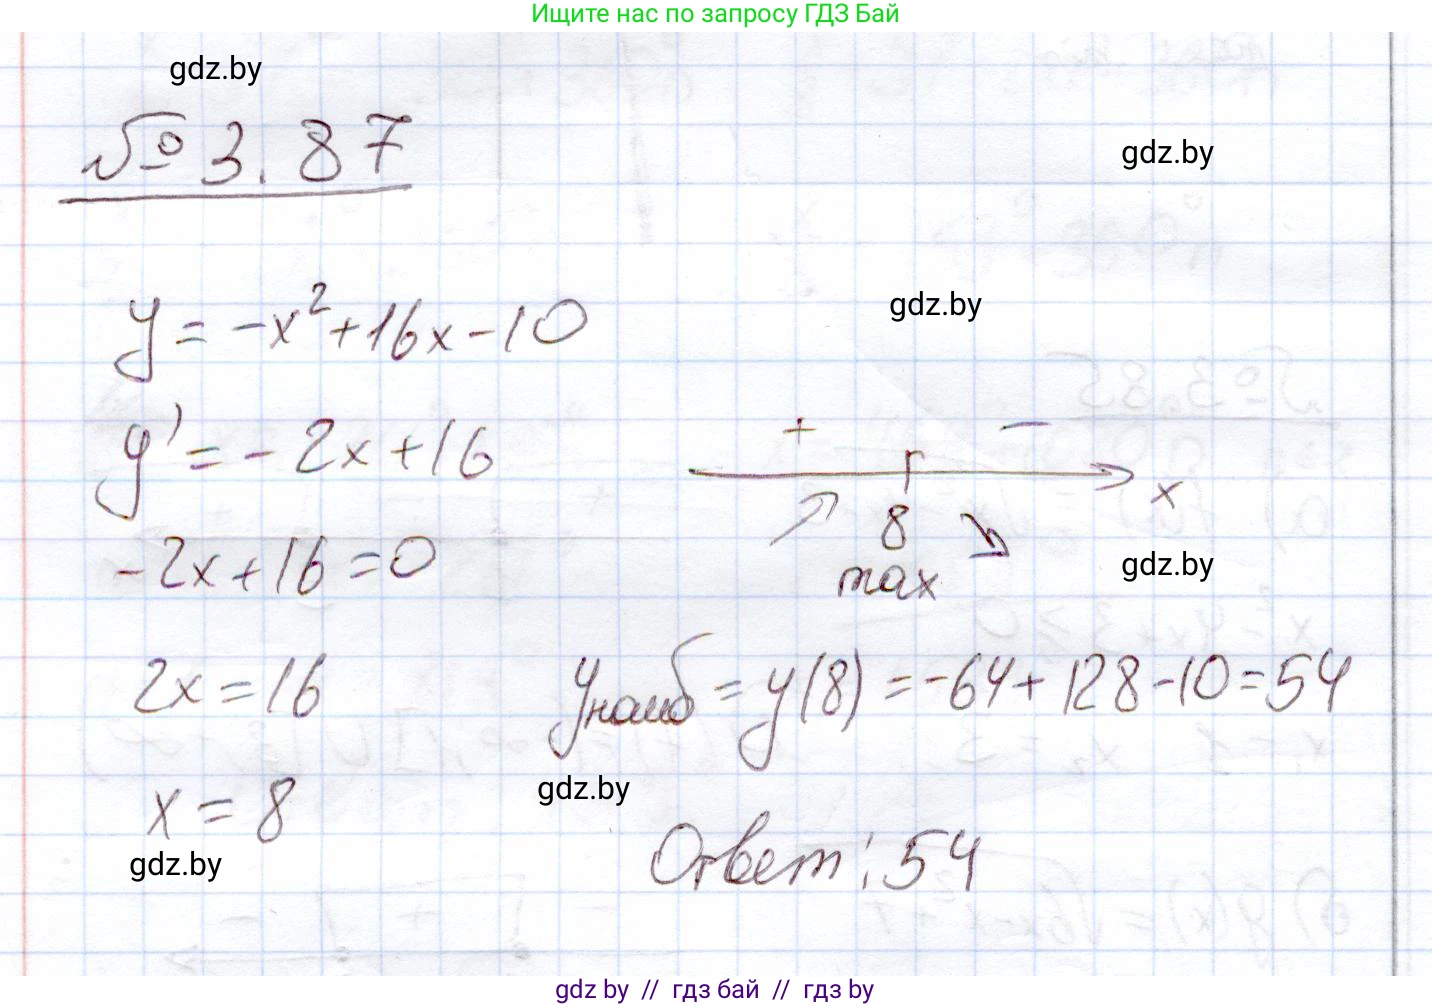 Ищите нас по запросу ГДЗ Бай
gdz.by
№ 3.87
gdz.by
y = -x² + 16x - 10
gdz.by
y' = - 2x + 16
+ −
x
8
max
-2x + 16 = 0
gdz.by
2x = 16
yнаиб = y(8) = -64 + 128 - 10 = 54
x = 8
gdz.by
Ответ: 54
gdz.by
gdz by // гдз бай // гдз by